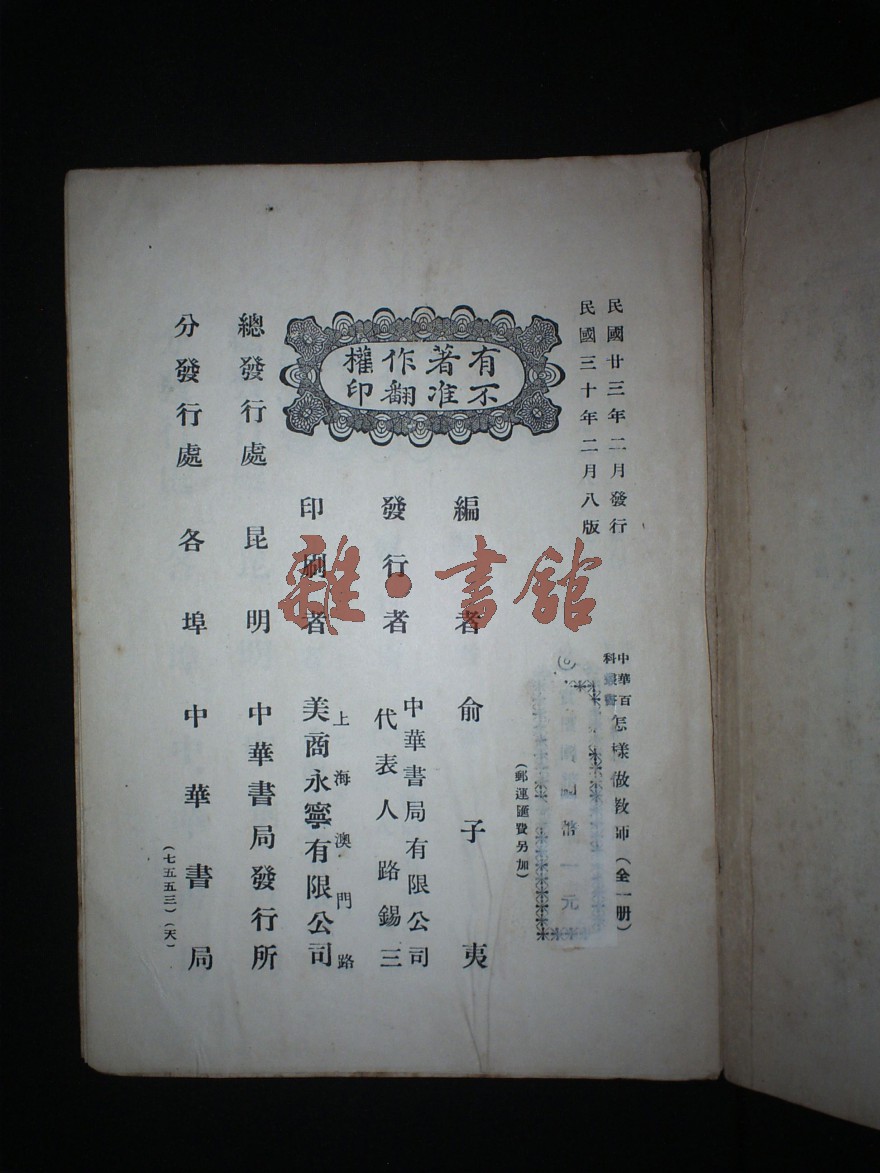 民國廿三年二月發行
民國三十年二月八版
中華百科叢書 怎樣做教師(全一册)
幣一元
(郵運匯費另加)
有著作權
不准翻印
編者 俞子夷
發行者 中華書局有限公司
代表人 路錫三
印刷者 上海澳門路
美商永寧有限公司
總發行處 昆明 中華書局發行所
分發行處 各埠 中華書局
(七五五三)(天)
雜·書館